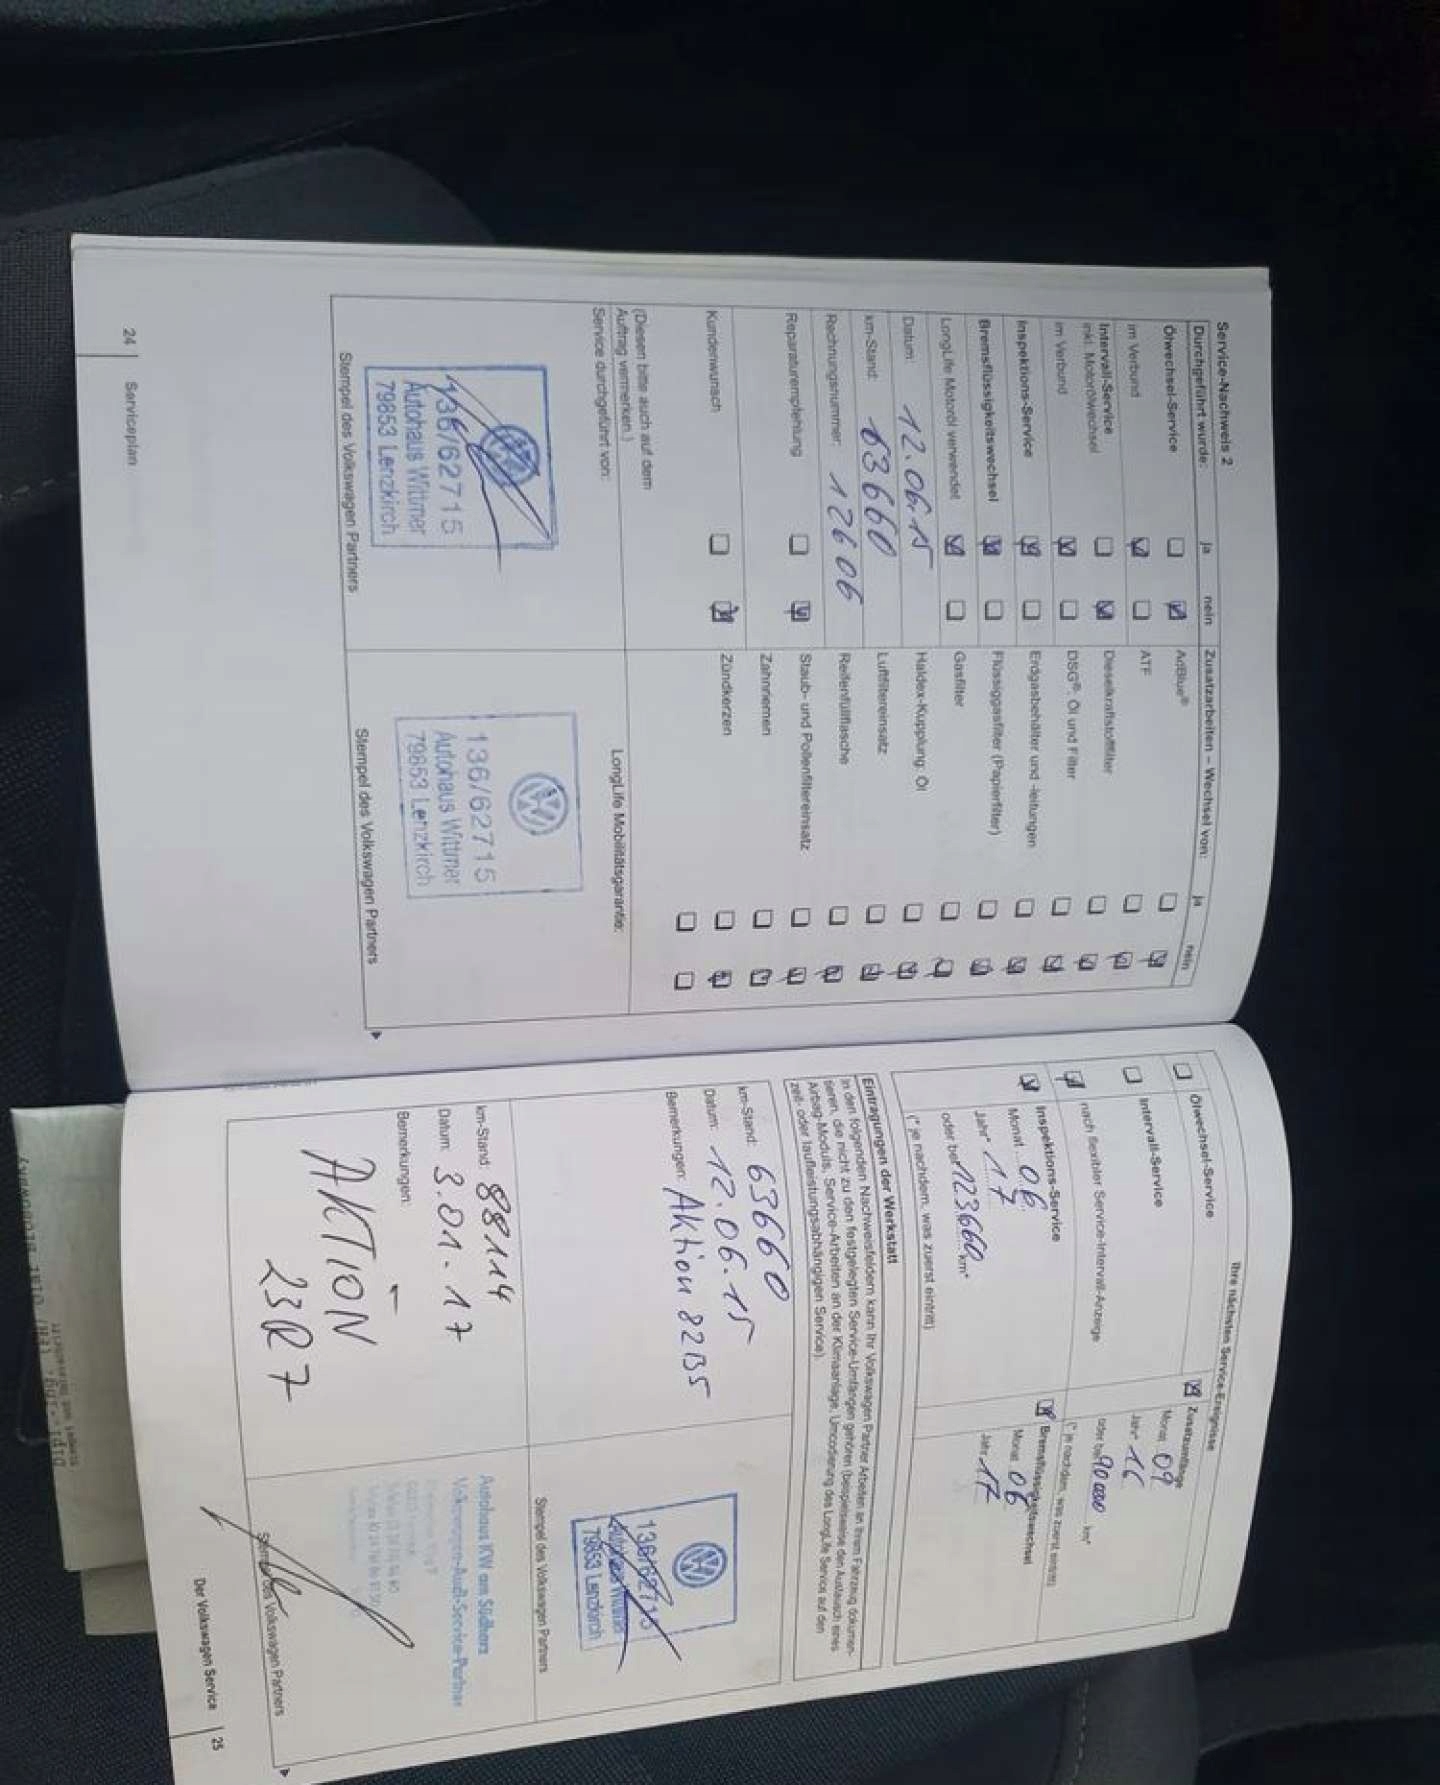 Service-Nachweis 2
Durchgeführt wurde: ja nein
Ölwechsel-Service
im Verbund
Intervall-Service
inkl. Motorölwechsel
im Verbund
Inspektions-Service
Bremsflüssigkeitswechsel
LongLife Motoröl verwendet
Datum: 12.06.15
km-Stand: 63660
Rechnungsnummer: 12606
Reparaturempfehlung
Kundenwunsch
(Diesen bitte auch auf dem
Auftrag vermerken.)
Service durchgeführt von:
136/62715
Autohaus Wittmer
79853 Lenzkirch
Stempel des Volkswagen Partners
Zusatzarbeiten – Wechsel von: ja nein
AdBlue®
ATF
Dieselkraftstofffilter
DSG®: Öl und Filter
Erdgasbehälter und -leitungen
Flüssiggasfilter (Papierfilter)
Gasfilter
Haldex-Kupplung: Öl
Luftfiltereinsatz
Reifenfüllflasche
Staub- und Pollenfiltereinsatz
Zahnriemen
Zündkerzen
LongLife Mobilitätsgarantie:
136/62715
Autohaus Wittmer
79853 Lenzkirch
Stempel des Volkswagen Partners
24 Serviceplan
Ihre nächsten Service-Ereignisse
Ölwechsel-Service
Intervall-Service
nach flexibler Service-Intervall-Anzeige
Inspektions-Service
Monat 06
Jahr* 17
oder bei 123660 km*
(* je nachdem, was zuerst eintritt)
Zusatzumfänge
Monat 09
Jahr* 16
oder bei 90000 km*
(* je nachdem, was zuerst eintritt)
Bremsflüssigkeitswechsel
Monat 06
Jahr 17
Eintragungen der Werkstatt
In den folgenden Nachweisfeldern kann Ihr Volkswagen Partner Arbeiten an Ihrem Fahrzeug dokumen-
tieren, die nicht zu den festgelegten Service-Umfängen gehören (beispielsweise den Austausch eines
Airbag-Moduls, Service-Arbeiten an der Klimaanlage, Umcodierung des LongLife Service auf den
zeit- oder laufleistungsabhängigen Service).
km-Stand: 63660
Datum: 12.06.15
Bemerkungen: Aktion 82B5
136/62715
Autohaus Wittmer
79853 Lenzkirch
Stempel des Volkswagen Partners
km-Stand: 88114
Datum: 3.01.17
Bemerkungen:
AKTION
23R7
Autohaus KW am Südharz
Volkswagen-Audi-Service-Partner
Stempel des Volkswagen Partners
Der Volkswagen Service 25